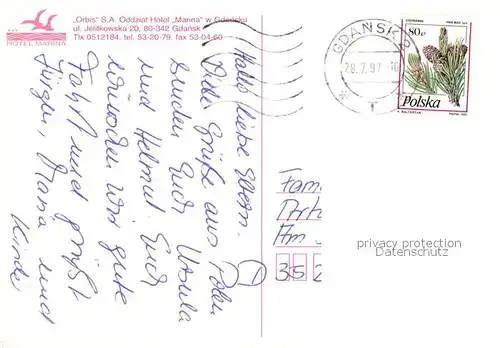 "Orbis" S.A. Oddział Hotel "Marina" w Gdańsku
ul. Jelitkowska 20, 80-342 Gdańsk
Tlx 0512184. tel. 53-20-79. fax 53-04-60
HOTEL MARINA
Hallo liebe Eltern.
Viele Grüße aus Polen
senden Euch Ursula
und Helmut. Euch
wünschen wir gute
Fahrt und grüßt
Jürgen, Maria und
Kinder
GDAŃSK
28.7.97
80 zł
Polska
Fam
Arth
Am
35 2
privacy protection
Datenschutz